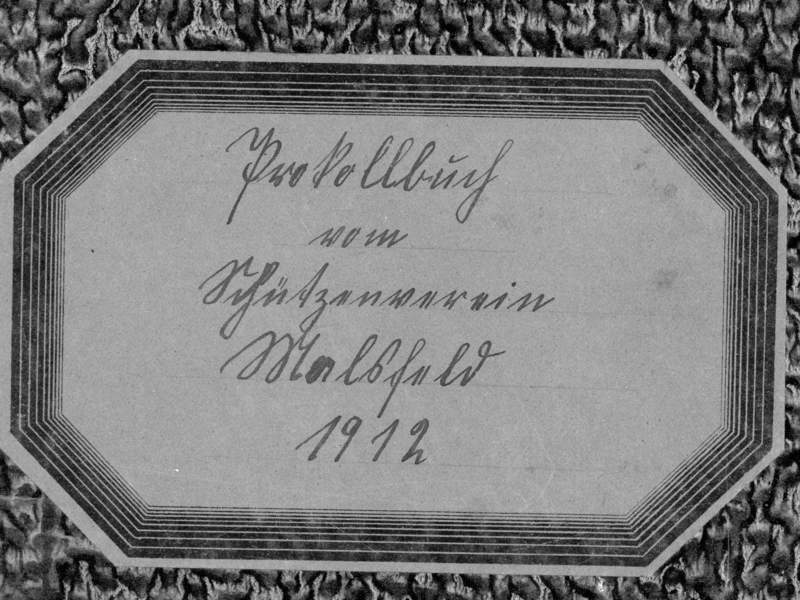 Prokollbuch
vom
Schützenverein
Malsfeld
1912